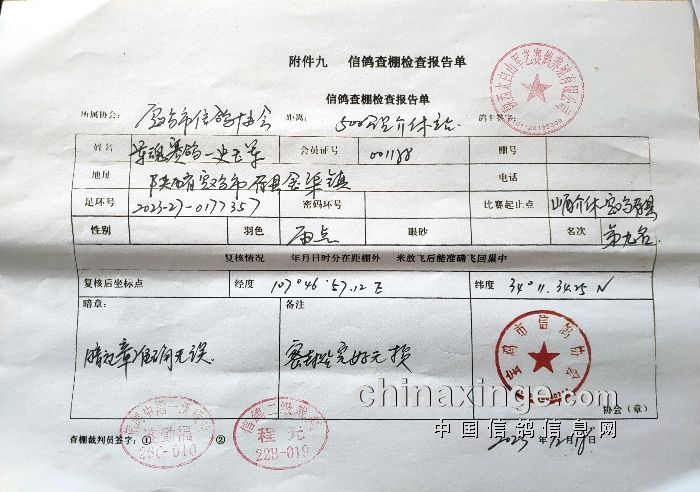 附件九 信鸽查棚检查报告单
信鸽查棚检查报告单
所属协会: 宝鸡市信鸽协会 距离: 500公里介休站 鸽主签字:
姓名 军魂赛鸽—史玉军 会员证号 001188 棚号
地址 陕西省宝鸡市眉县金渠镇 电话
足环号 2023-27-0177357 密码环号 比赛起止点 山西介休宝鸡眉县
性别 羽色 雨点 眼砂 名次 第九名
复核情况 年月日时分在距棚外 米放飞后能准确飞回巢中
复核后坐标点 经度 107°46′57.12 E 纬度 34°11.34.25 N
暗章: 备注
暗记章准确无误 密封签完好无损
宝鸡市信鸽协会
协会(章)
查棚裁判员签字: ① ② 2023 年 12 月 日
26C-010
信鸽二级裁判
程元
22B-019
chinaxinge.com
中国信鸽信息网